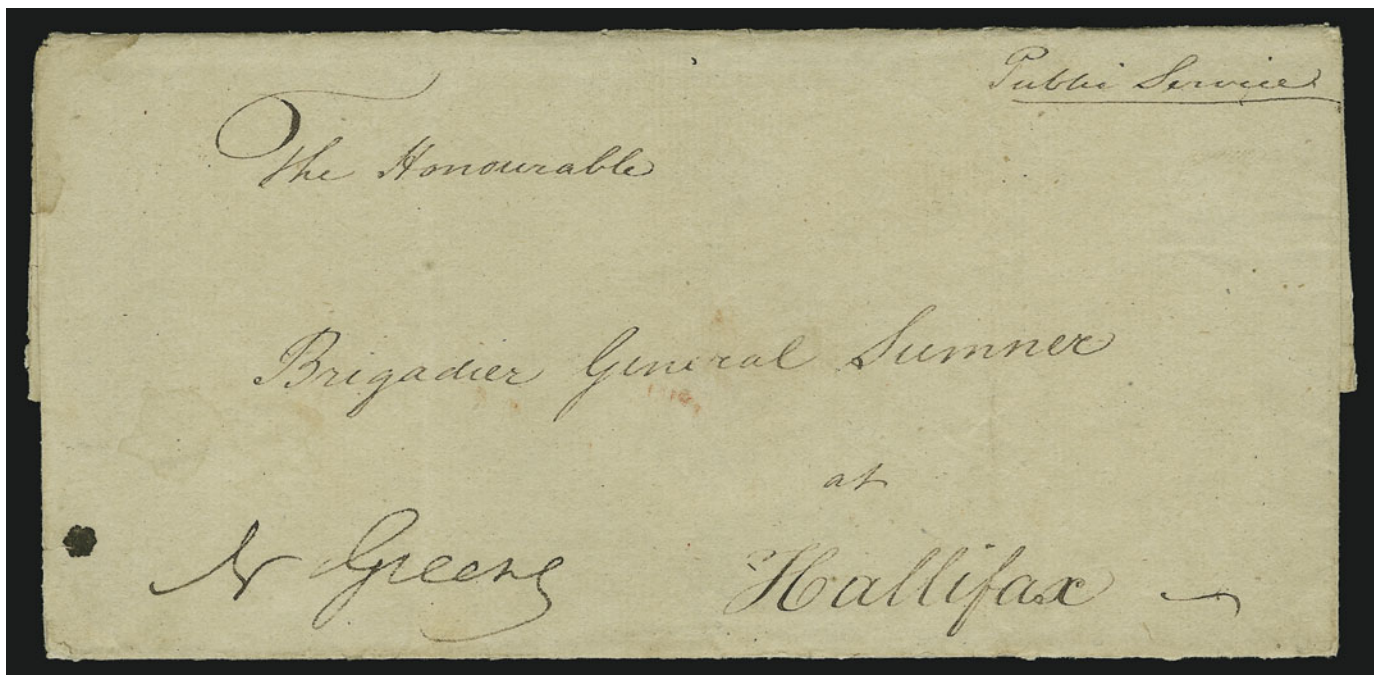 Public Service
The Honourable
Brigadier General Sumner
at
N Greene
Hallifax